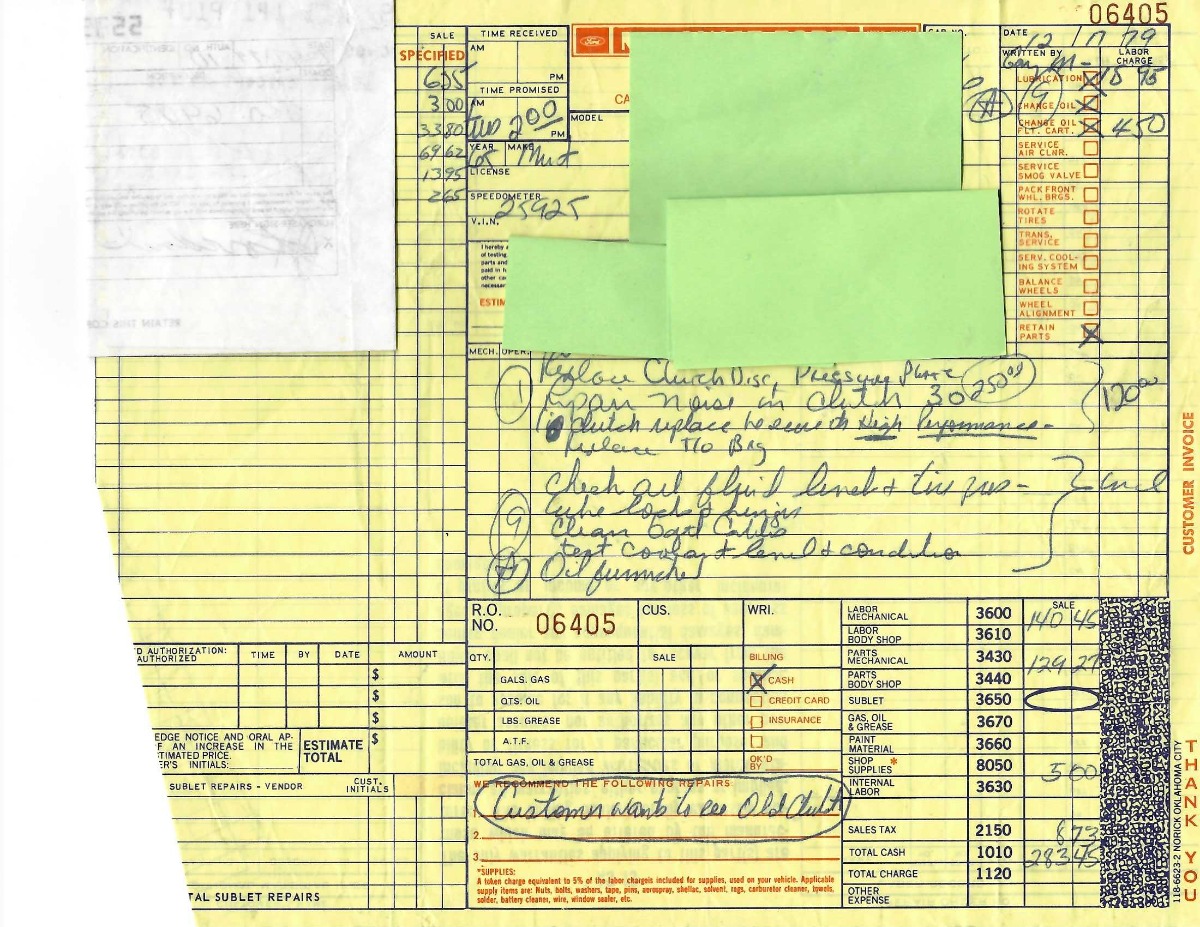 06405
SALE
TIME RECEIVED
DATE
12/17/79
AM
PM
WRITTEN BY
LABOR CHARGE
SPECIFIED
6 25
3 00
33 80
69 62
13 95
2 65
TIME PROMISED
AM
2 00
PM
Ford
CA
MODEL
YEAR
65
MAKE
Must
LICENSE
SPEEDOMETER
25925
V.I.N.
LUBRICATION
15 95
CHANGE OIL
CHANGE OIL FLT. CART.
4 50
SERVICE AIR CLNR.
SERVICE SMOG VALVE
PACK FRONT WHL. BRGS.
ROTATE TIRES
TRANS. SERVICE
SERV. COOLING SYSTEM
BALANCE WHEELS
WHEEL ALIGNMENT
RETAIN PARTS
I hereby a
of testing,
parts and
paid in f
other car
necessar
ESTIM
RETAIN THIS COP
MECH.
OPER.
1
Replace Clutch Disc, Pressure Plate
250 00
repair noise in clutch 30
120 00
clutch replace be sure with High Performance
Replace T/O Brg
check all fluid level & tire pres -
lube locks & hinges
Clean batt Cables
test coolant level & condition
Oil furnished
CUSTOMER INVOICE
R.O. NO.
06405
CUS.
WRI.
QTY.
SALE
BILLING
GALS. GAS
CASH
QTS. OIL
CREDIT CARD
LBS. GREASE
INSURANCE
A.T.F.
TOTAL GAS, OIL & GREASE
OK'D BY
SALE
LABOR MECHANICAL 3600 140 45
LABOR BODY SHOP 3610
PARTS MECHANICAL 3430 129 27
PARTS BODY SHOP 3440
SUBLET 3650
GAS, OIL & GREASE 3670
PAINT MATERIAL 3660
SHOP SUPPLIES * 8050 5 00
INTERNAL LABOR 3630
SALES TAX 2150 8 73
TOTAL CASH 1010 283 45
TOTAL CHARGE 1120
OTHER EXPENSE
D AUTHORIZATION:
AUTHORIZED
TIME
BY
DATE
AMOUNT
$
$
$
EDGE NOTICE AND ORAL AP-
F AN INCREASE IN THE
STIMATED PRICE.
ER'S INITIALS:
ESTIMATE TOTAL
$
SUBLET REPAIRS - VENDOR
CUST. INITIALS
TAL SUBLET REPAIRS
WE RECOMMEND THE FOLLOWING REPAIRS:
1.
Customer wants to see Old Clutch
2.
3.
*SUPPLIES:
A token charge equivalent to 5% of the labor charge is included for supplies, used on your vehicle. Applicable
supply items are: Nuts, bolts, washers, tape, pins, aerospray, shellac, solvent, rags, carburetor cleaner, towels,
solder, battery cleaner, wire, window sealer, etc.
118-6623-2 NORICK OKLAHOMA CITY
THANK YOU